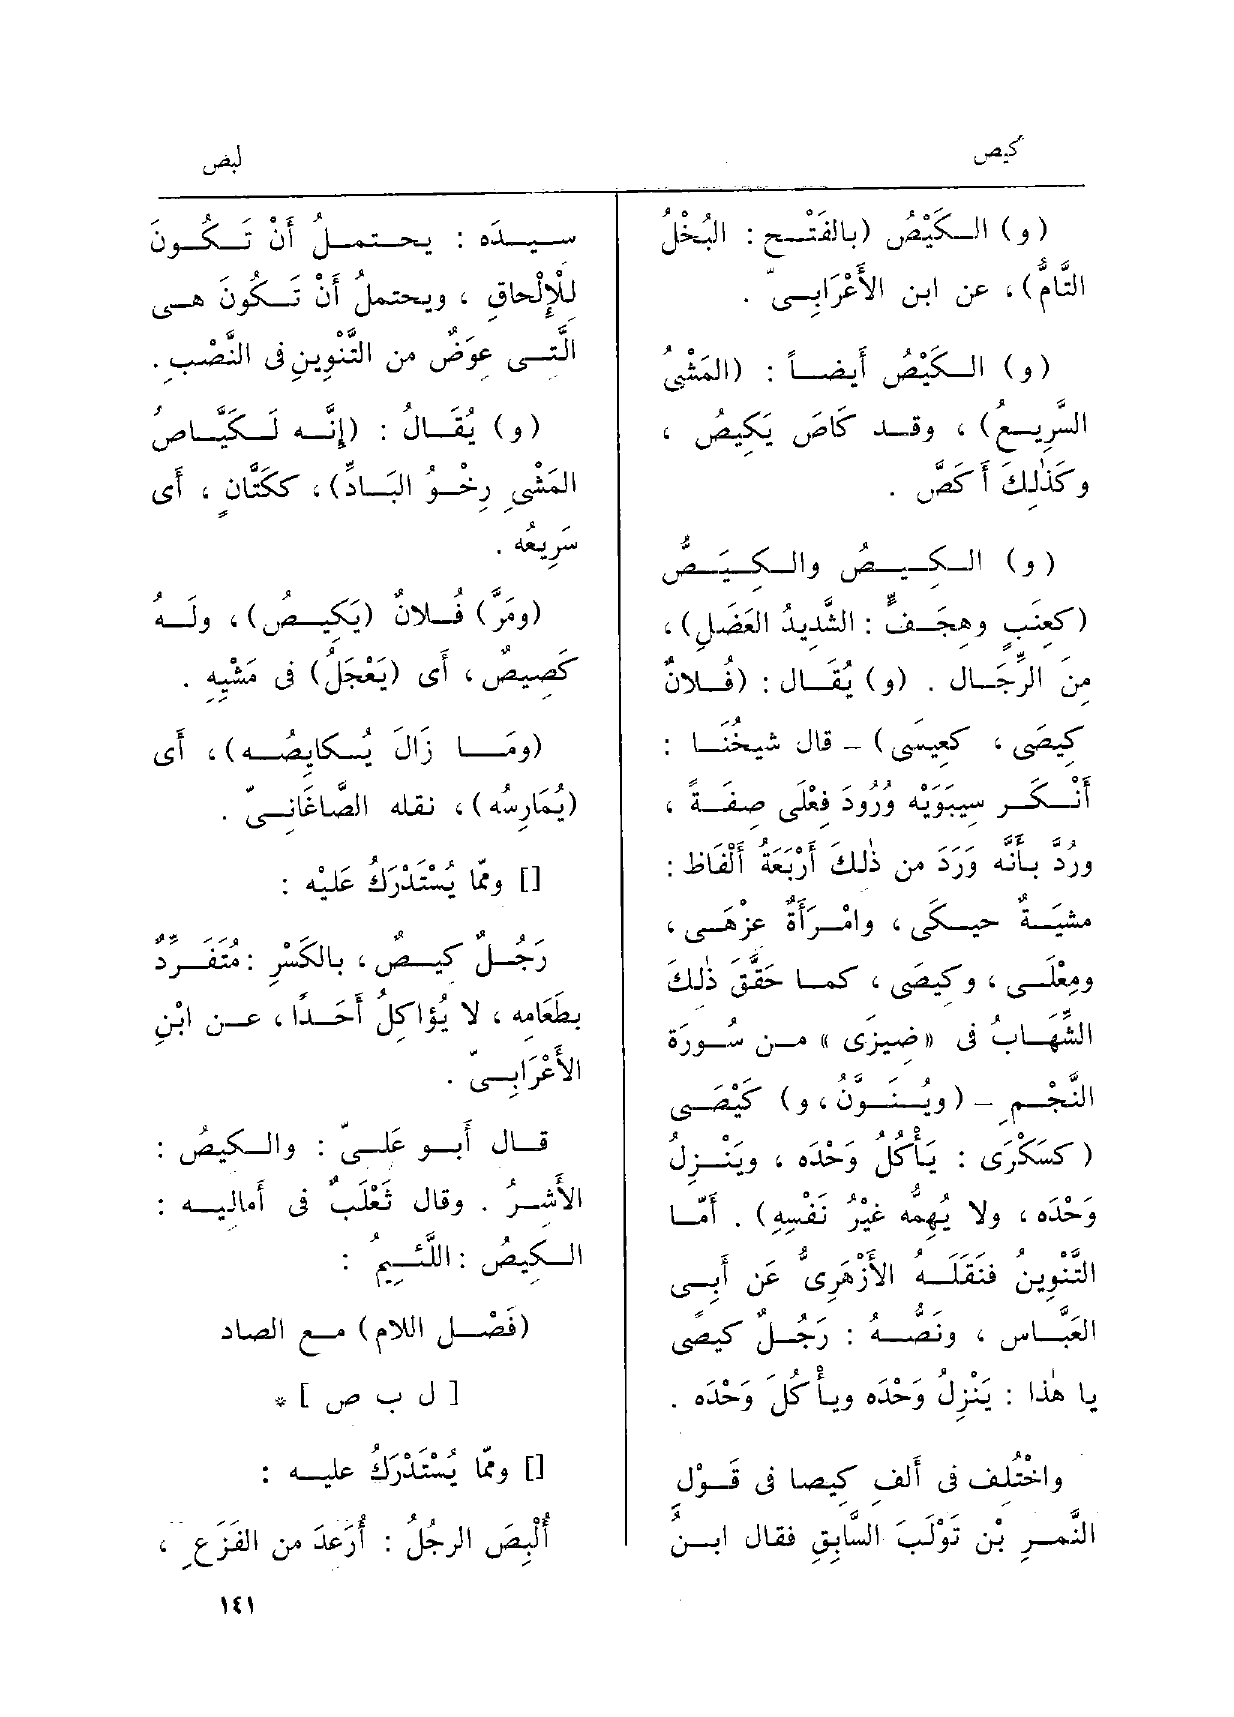 كيص
لبص
(و) الكَيْصُ (بالفَتْح : البُخْلُ
التَّامُّ)، عن ابن الأَعْرَابِىّ .
(و) الكَيْصُ أَيضاً : (المَشْىُ
السَّرِيعُ) ، وقد كَاصَ يَكِيصُ ،
وكَذٰلِكَ أَكَصَّ .
(و) الكِيصُ والكِيَصُّ
(كعِنَبٍ وهِجَفٍّ : الشَّدِيدُ العَضَلِ)،
مِنَ الرِّجَال . (و) يُقَال : (فُلانٌ
كِيصَى ، كعِيسَى) – قال شيخُنَا :
أَنْكَر سِيبَوَيْهِ وُرُودَ فِعْلَى صِفَةً ،
ورُدَّ بأَنَّه وَرَدَ من ذٰلِكَ أَرْبَعَةُ أَلْفَاظ :
مشْيَةٌ حِيكَى ، وامْرَأَةٌ عِزْهَى ،
ومِعْلَى ، وكِيصَى ، كما حَقَّقَ ذٰلِكَ
الشِّهَابُ فى «ضِيزَى» من سُورَةِ
النَّجْمِ – (ويُنَوَّنُ ، و) كَيْصَى
(كسَكْرَى : يَأْكُلُ وَحْدَه ، ويَنْزِلُ
وَحْدَه ، ولا يُهِمُّه غيْرُ نَفْسِهِ) . أَمّا
التَّنْوِينُ فنَقَلَه الأَزْهَرِىُّ عَن أَبِى
العَبَّاس ، ونَصُّهُ : رَجُلٌ كِيصًى
يا هٰذا : يَنْزِلُ وَحْدَه ويأْكُلَ وَحْدَه .
واخْتُلف فى أَلفِ كِيصا فى قَوْلِ
النَّمِرِ بْنِ تَوْلَبَ السَّابِقِ فقال ابنُ
سِيدَه : يحتملُ أَنْ تَكُونَ
لِلْإِلْحاقِ ، ويحتملُ أَنْ تَكُونَ هى
الَّتِى عِوَضٌ من التَّنْوِينِ فى النَّصْبِ .
(و) يُقَالُ : (إِنَّه لَكَيَّاصُ
المَشْىِ رِخْوُ البَادِّ)، ككَتَّانٍ ، أَى
سَرِيعُه .
(ومَرَّ) فُلانٌ (يَكِيصُ)، ولَهُ
كَصِيصٌ ، أَى (يَعْجَلُ) فى مَشْيِهِ .
(ومَا زَالَ يُكايِصُه)، أَى
(يُمَارِسُه)، نقله الصَّاغَانِىّ .
[] وممّا يُسْتَدْرَكُ عَلَيْه :
رَجُلٌ كِيصٌ ، بالكَسْرِ : مُتَفَرِّدٌ
بطَعَامِه ، لا يُؤَاكِلُ أَحَدًا ، عن ابْنِ
الأَعْرَابِىّ .
قال أَبو عَلِىّ : والكِيصُ :
الأَشِرُ . وقال ثَعْلَبٌ فى أَمَالِيه :
الكِيصُ : اللَّئِيمُ :
(فَصْل اللام) مع الصاد
[ ل ب ص ] *
[] وممّا يُسْتَدْرَكُ عليه :
أُلْبِصَ الرجُلُ : أُرْعِدَ من الفَزَعِ ،
١٤١